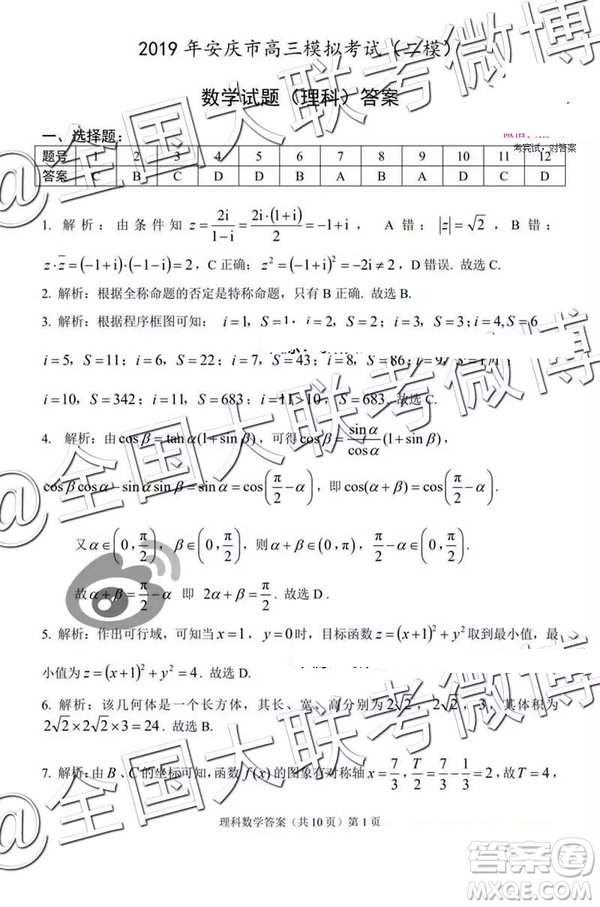 2019 年安庆市高三模拟考试（二模）
数学试题（理科）答案
一、选择题：
考完试，对答案
题号 1 2 3 4 5 6 7 8 9 10 11 12
答案 C B C D D B A A D C C D
1. 解析：由条件知 z=2i/(1-i)=2i·(1+i)/2=-1+i， A 错；|z|=√2，B 错；
z·z̄=(-1+i)·(-1-i)=2，C 正确；z²=(-1+i)²=-2i≠2，D 错误. 故选 C.
2. 解析：根据全称命题的否定是特称命题，只有 B 正确. 故选 B.
3. 解析：根据程序框图可知： i=1，S=1；i=2，S=2；i=3，S=3；i=4，S=6
i=5，S=11；i=6，S=22；i=7，S=43；i=8，S=86；
i=10，S=342；i=11，S=683；i=11>10，S=683. 故选 C.
4. 解析：由 cosβ=tanα(1+sinβ)，可得 cosβ=sinα/cosα(1+sinβ)，
cosβcosα-sinαsinβ=sinα=cos(π/2-α)，即 cos(α+β)=cos(π/2-α)，
又 α∈(0, π/2)，β∈(0, π/2)，则 α+β∈(0, π)，
故 α+β=π/2-α 即 2α+β=π/2. 故选 D.
5. 解析：作出可行域，可知当 x=1，y=0 时，目标函数 z=(x+1)²+y² 取到最小值，最
小值为 z=(x+1)²+y²=4. 故选 D.
6. 解析：该几何体是一个长方体，其长、宽、高分别为 2√2，2√2，3，其体积为
2√2×2√2×3=24. 故选 B.
7. 解析：由 B、C 的坐标可知，函数 f(x) 的图象有对称轴 x=7/3，T/2=7/3-1/3=2，故 T=4，
理科数学答案（共 10 页）第 1 页
@全国大联考微博
@全国大联考微博
@全国大联考微博
答案圈
MXQE.COM